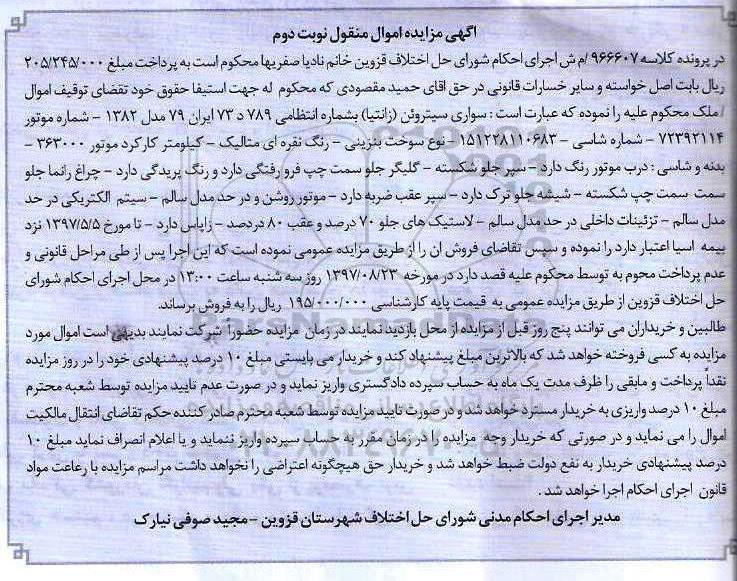 اگهی مزایده اموال منقول نوبت دوم
در پرونده کلاسه ۹۶۶۶۰۷ /م ش اجرای احکام شورای حل اختلاف قزوین خانم نادیا صفریها محکوم است به پرداخت مبلغ ۲۰۵/۲۴۵/۰۰۰
ریال بابت اصل خواسته و سایر خسارات قانونی در حق اقای حمید مقصودی که محکوم له جهت استیفا حقوق خود تقضای توقیف اموال
/ملک محکوم علیه را نموده که عبارت است : سواری سیتروئن (زانتیا) بشماره انتظامی ۷۸۹ د ۷۳ ایران ۷۹ مدل ۱۳۸۲ – شماره موتور
۷۲۳۹۲۱۱۴ – شماره شاسی – ۱۵۱۲۲۸۱۱۰۶۸۳ – نوع سوخت بنزینی – رنگ نقره ای متالیک – کیلومتر کارکرد موتور ۳۶۳۰۰۰ –
بدنه و شاسی : درب موتور رنگ دارد – سپر جلو شکسته – گلیگر جلو سمت چپ فرو رفتگی دارد و رنگ پریدگی دارد – چراغ رانما جلو
سمت سمت چپ شکسته – شیشه جلو ترک دارد – سپر عقب ضربه دارد – موتور روشن و در حد مدل سالم – سیتم الکتریکی در حد
مدل سالم – تزئینات داخلی در حد مدل سالم – لاستیک های جلو ۷۰ درصد و عقب ۸۰ دردصد – زاپاس دارد – تا مورخ ۱۳۹۷/۵/۵ نزد
بیمه اسیا اعتبار دارد را نموده و سپس تقاضای فروش ان را از طریق مزایده عمومی نموده است که این اجرا پس از طی مراحل قانونی و
عدم پرداخت محوم به توسط محکوم علیه قصد دارد در مورخه ۱۳۹۷/۰۸/۲۳ روز سه شنبه ساعت ۱۳:۰۰ در محل اجرای احکام شورای
حل اختلاف قزوین از طریق مزایده عمومی به قیمت پایه کارشناسی ۱۹۵/۰۰۰/۰۰۰ ریال را به فروش برساند.
طالبین و خریداران می توانند پنج روز قبل از مزایده از محل بازدید نمایند در زمان مزایده حضوراً شرکت نمایند بدیهی است اموال مورد
مزایده به کسی فروخته خواهد شد که بالاترین مبلغ پیشنهاد کند و خریدار می بایستی مبلغ ۱۰ درصد پیشنهادی خود را در روز مزایده
نقداً پرداخت و مابقی را ظرف مدت یک ماه به حساب سپرده دادگستری واریز نماید و در صورت عدم تایید مزایده توسط شعبه محترم
مبلغ ۱۰ درصد واریزی به خریدار مسترد خواهد شد و در صورت تایید مزایده توسط شعبه محترم صادر کننده حکم تقاضای انتقال مالکیت
اموال را می نماید و در صورتی که خریدار وجه مزایده را در زمان مقرر به حساب سپرده واریز ننماید و یا اعلام انصراف نماید مبلغ ۱۰
درصد پیشنهادی خریدار به نفع دولت ضبط خواهد شد و خریدار حق هیچگونه اعتراضی را نخواهد داشت مراسم مزایده با رعاعت مواد
قانون اجرای احکام اجرا خواهد شد .
مدیر اجرای احکام مدنی شورای حل اختلاف شهرستان قزوین – مجید صوفی نیارک